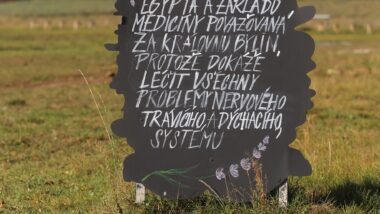 EGYPTA A ZÁKLADŮ
MEDICÍNY POVAŽOVÁNA
ZA KRÁLOVNU BYLIN,
PROTOŽE DOKÁŽE
LÉČIT VŠECHNY
PROBLÉMY NERVOVÉHO
TRÁVICÍHO A DÝCHACÍHO,
SYSTÉMU